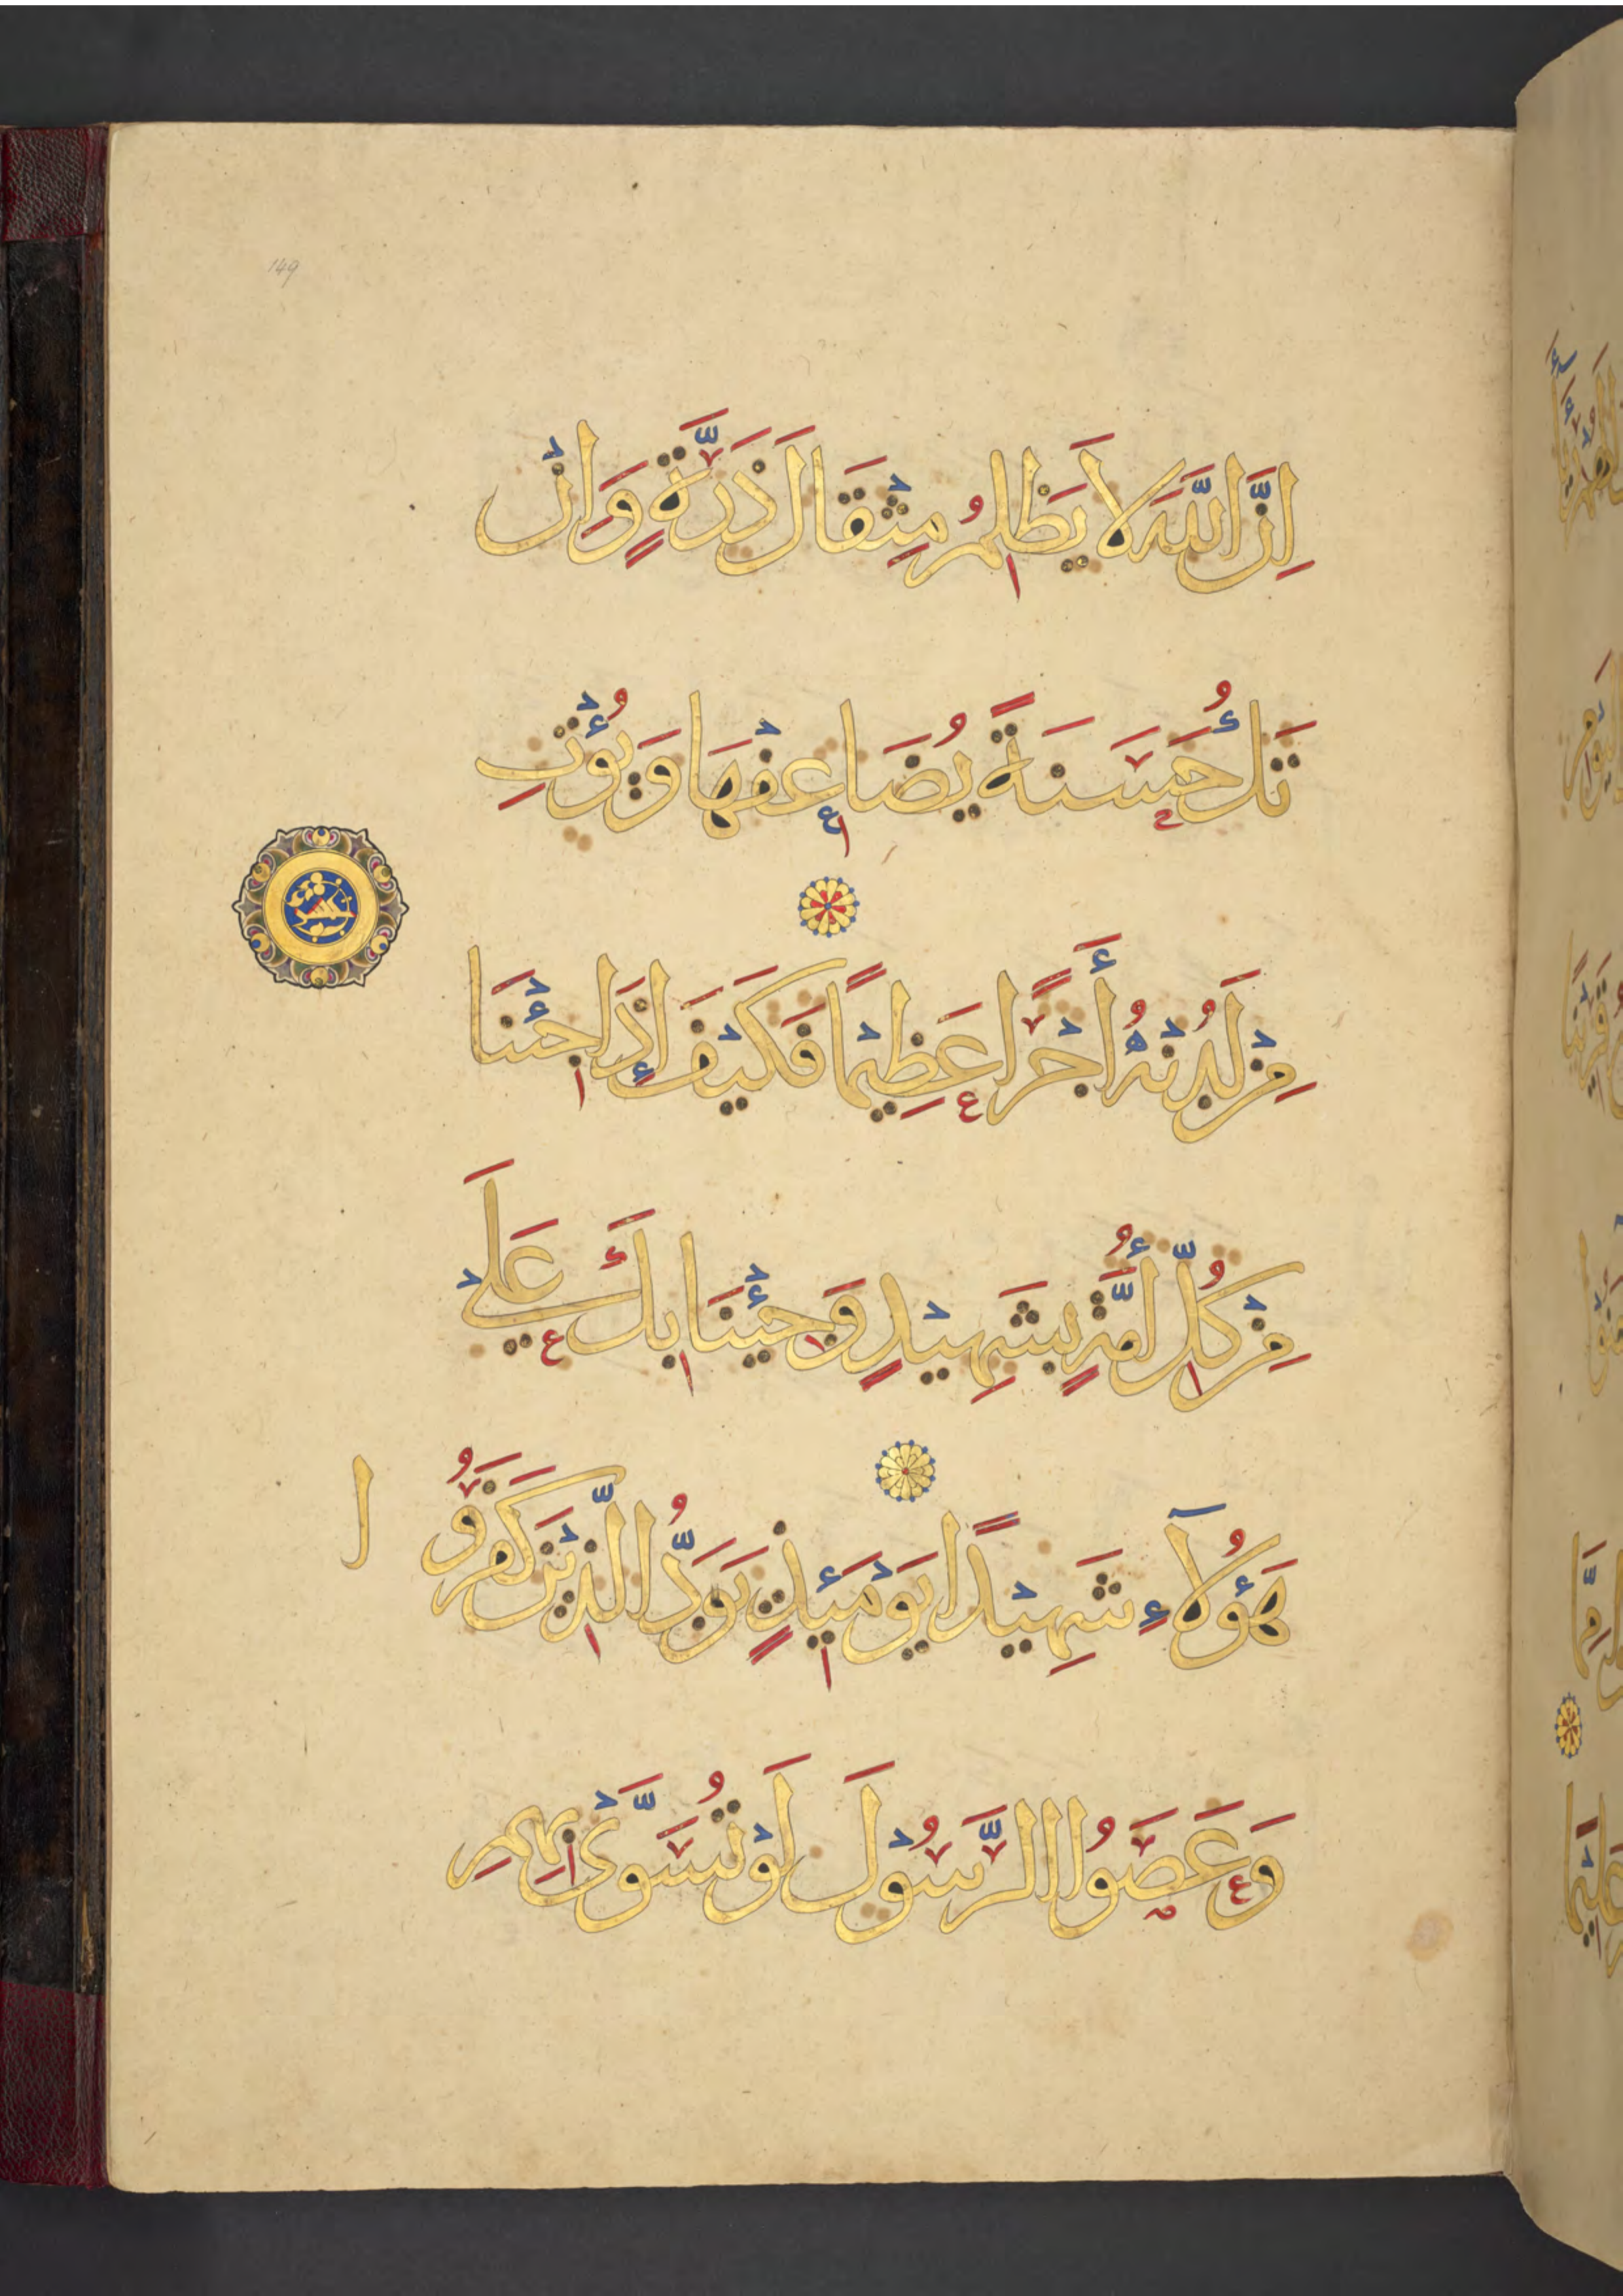 149
اِنَّ اللَّهَ لَا يَظْلِمُ مِثْقَالَ ذَرَّةٍ وَاِنْ
تَكُ حَسَنَةً يُضَاعِفْهَا وَيُؤْتِ
مِنْ لَدُنْهُ أَجْرًا عَظِيْمًا فَكَيْفَ إِذَا جِئْنَا
مِنْ كُلِّ أُمَّةٍ بِشَهِيْدٍ وَجِئْنَا بِكَ عَلَي
هَؤُلَآءِ شَهِيْدًا يَوْمَئِذٍ يَوَدُّ الَّذِيْنَ كَفَرُوا
وَعَصَوُا الرَّسُوْلَ لَوْ تُسَوَّىْ بِهِمِ